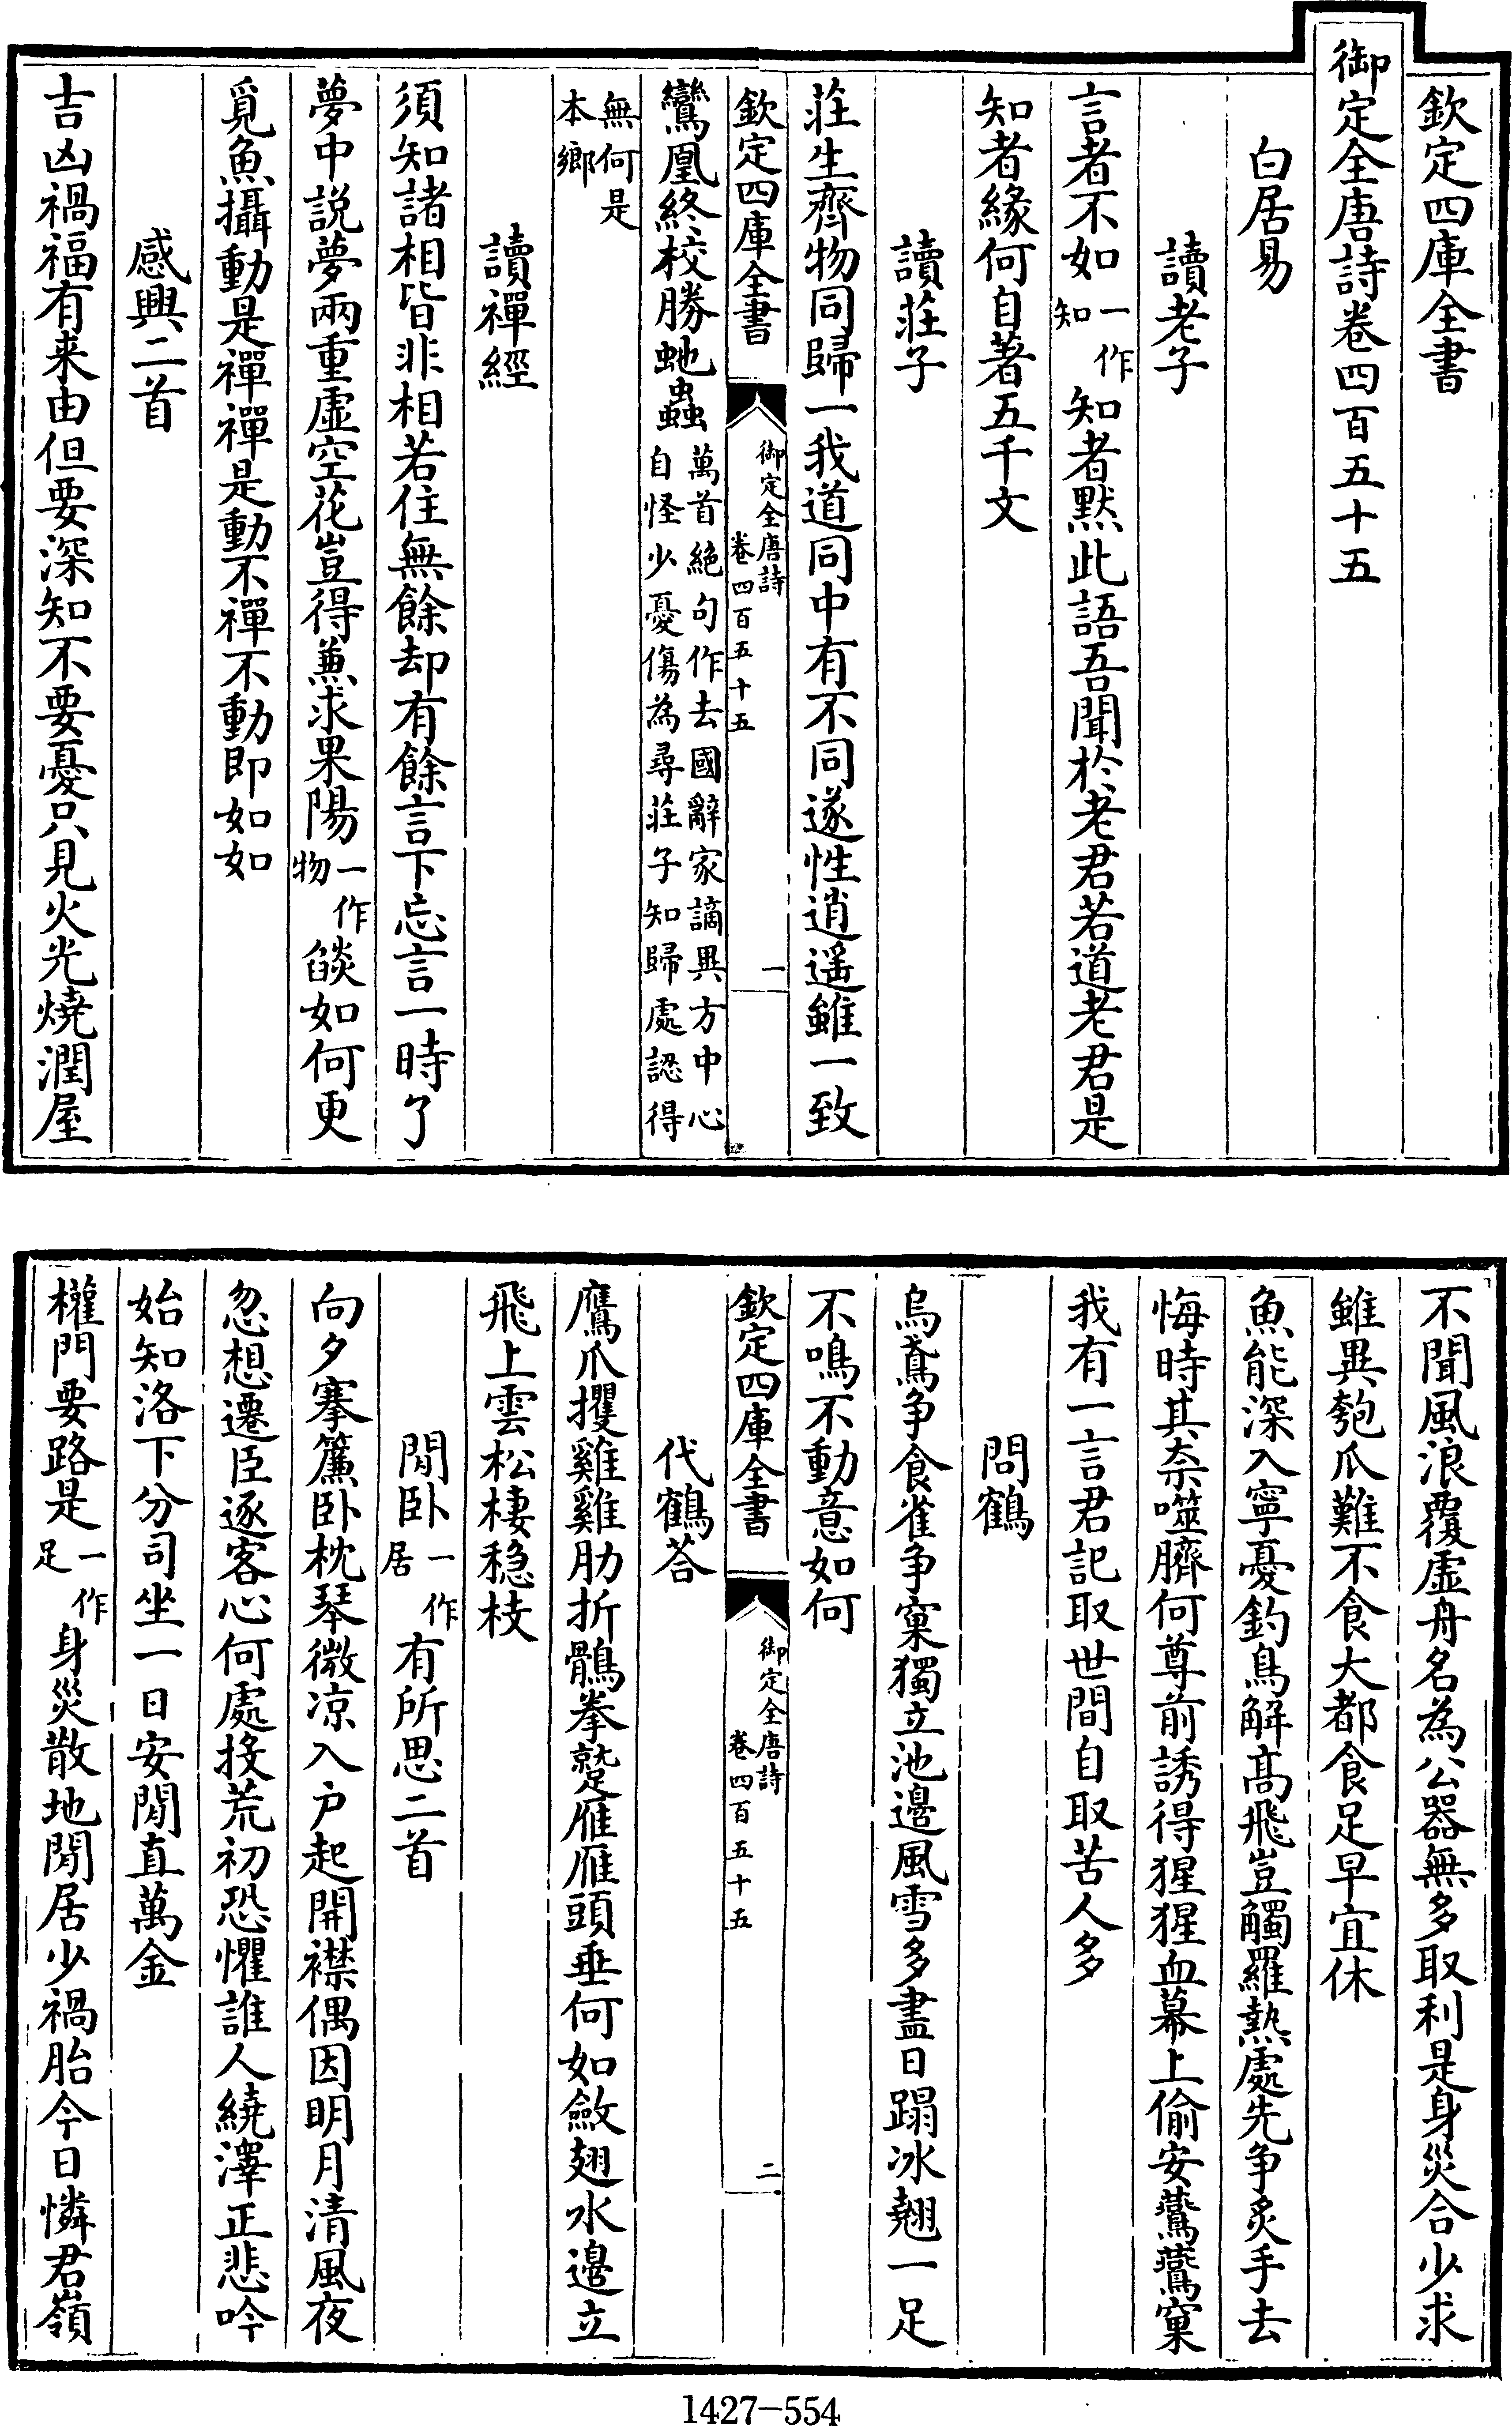 欽定四庫全書
御定全唐詩卷四百五十五
白居易
讀老子
言者不如一作知知者默此語吾聞於老君若道老君是
知者緣何自著五千文
讀莊子
莊生齊物同歸一我道同中有不同遂性逍遥雖一致
欽定四庫全書
御定全唐詩
卷四百五十五
一
鸞凰終校勝虵蟲萬首絶句作去國辭家謫異方中心
自怪少憂傷為尋莊子知歸處認得
無何是
本鄉
讀禪經
須知諸相皆非相若住無餘却有餘言下忘言一時了
夢中説夢兩重虛空花豈得兼求果陽一作物燄如何更
覓魚攝動是禪禪是動不禪不動即如如
感興二首
吉凶禍福有来由但要深知不要憂只見火光燒潤屋
不聞風浪覆虛舟名為公器無多取利是身災合少求
雖異匏瓜難不食大都食足早宜休
魚能深入寧憂釣鳥解髙飛豈觸羅熱處先争炙手去
悔時其奈噬臍何尊前誘得猩猩血幕上偷安鷰鷰窠
我有一言君記取世間自取苦人多
問鶴
烏鳶争食雀争窠獨立池邉風雪多盡日蹋冰翹一足
不鳴不動意如何
欽定四庫全書
御定全唐詩
卷四百五十五
二
代鶴荅
鷹爪攫雞雞肋折鶻拳蹵雁雁頭垂何如斂翅水邉立
飛上雲松棲穏枝
閒卧一作居有所思二首
向夕搴簾卧枕琴微凉入户起開襟偶因明月清風夜
忽想遷臣逐客心何處投荒初恐懼誰人繞澤正悲吟
始知洛下分司坐一日安閒直萬金
權門要路是一作足身災散地閒居少禍胎今日憐君嶺
1427-554